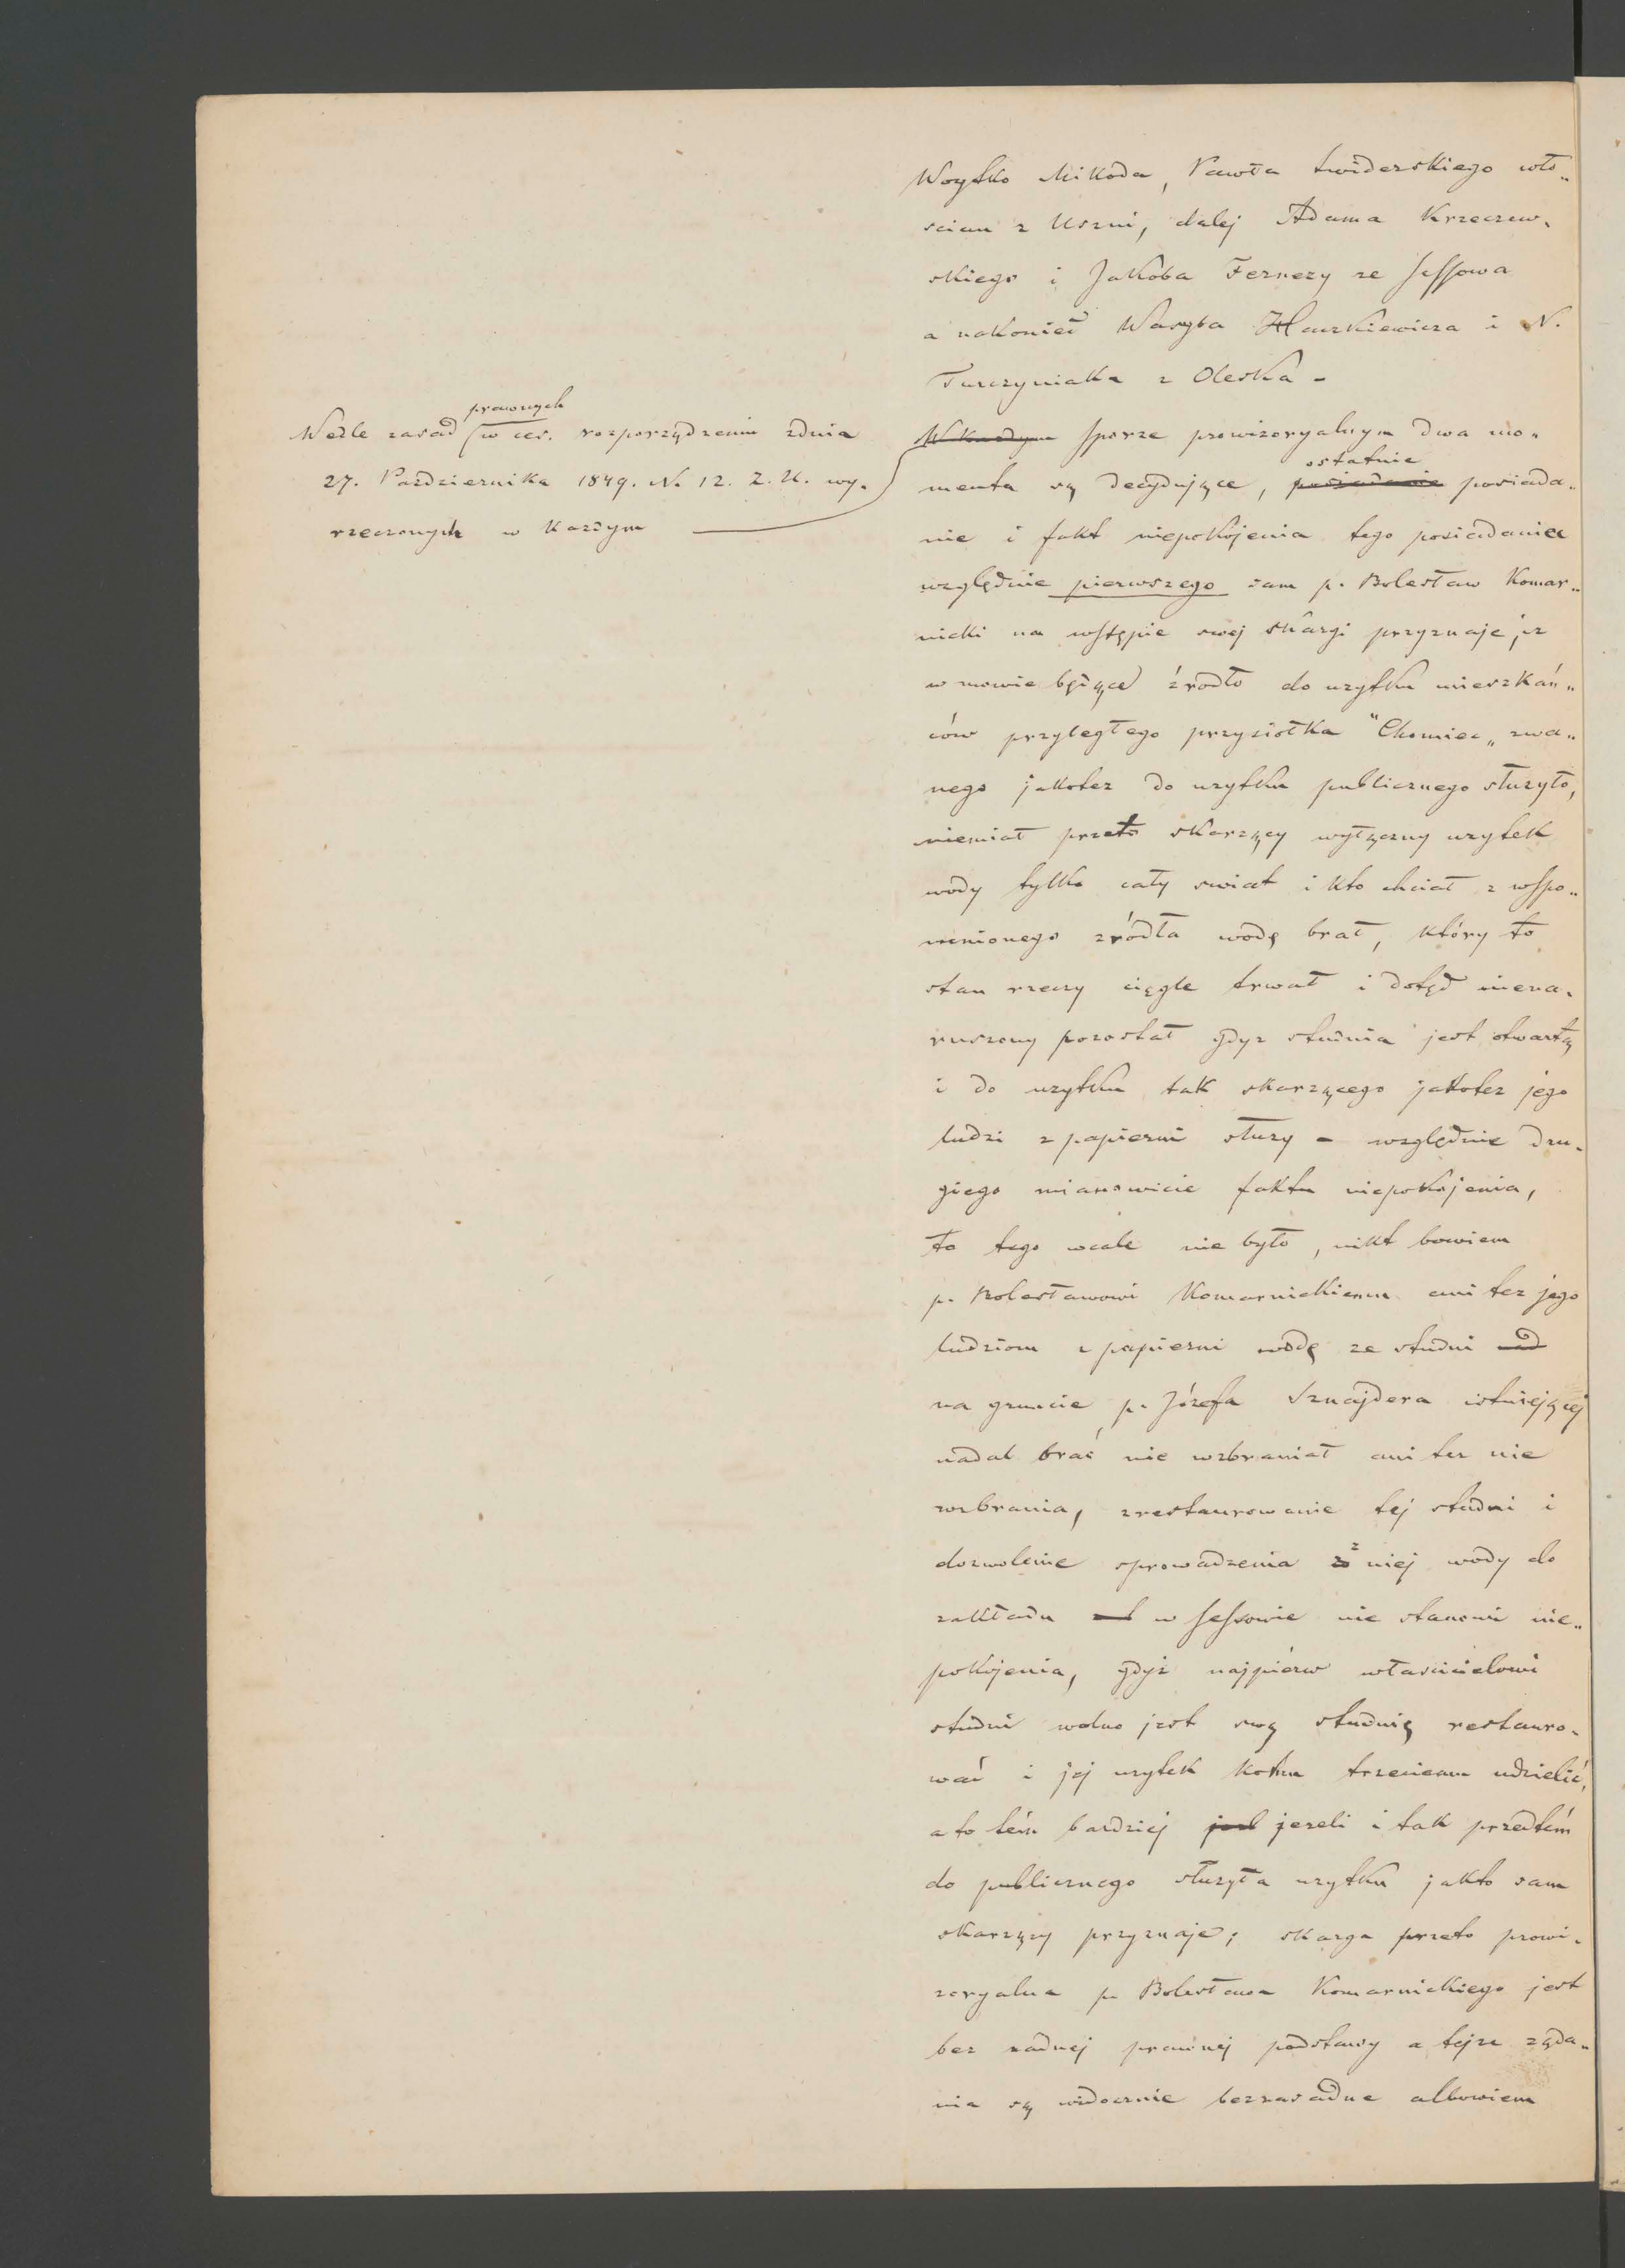 Woytko Mikoda, Pawła Świderskiego wło„
scian z Uszni, dalej Adama Krzeczew„
skiego i Jakóba Fernezy ze Sassowa
a nakoniec Wasyla Hauzkiewicza i N.
Turczyniaka z Oleska –
prawnych
Wedle zasad w ces. rozporządzeniu zdnia
27. Pazdziernika 1849. N. 12. Z. U. wy„
rzeczonych w kazdym
W kazdym sporze prowizoryalnym dwa mo„
ostatnie
menta są decydujące, posiadanie posiada„
nie i fakt niepokojenia tego posiadania
względnie pierwszego sam p. Bolesław Komar„
nicki na wstępie swej skargi przyznaje, iz
w mowie będące źrodło do uzytku mieszkań„
ców przyległego przysiołka "Chomiec„ zwa„
nego jakotez do uzytku publicznego słuzyło,
niemiał przeto skarzący wyłączny uzytek
wody tylko cały swiat i kto chciał z wspo„
mnionego zródła wodę brał, który to
stan rzeczy ciągle trwał i dotąd niena„
ruszony pozostał gdyz studnia jest otwartą
i do uzytku tak skarzącego jakotez jego
ludzi z papierni słuzy – względnie dru„
giego mianowicie faktu niepokojenia,
to tego wcale nie było, nikt bowiem
p. Bolesławowi Komarnickiemu ani tez jego
ludziom z papierni wodę ze studni nad
na gruncie p. Józefa Sznajdera istniejącej
nadal brać nie wzbraniał ani tez nie
wzbrania, zrestaurowanie tej studni i
dozwolenie sprowadzenia z niej wody do
zakładu w Sassowie nie stanowi nie„
pokojenia, gdyż najpierw własicielowi
studni wolno jest swą studnię restauro„
wać i jej uzytek komu trzeciemu udzielić,
a to tém bardziej jezeli i tak przedtém
do publicznego słuzyła uzytku jakto sam
skarzący przyznaje; skarga przeto prowi„
zoryalna p. Bolesława Komarnickiego jest
bez zadnej prawnej podstawy a tejze ząda„
nia są widocznie bezzasadne albowiem